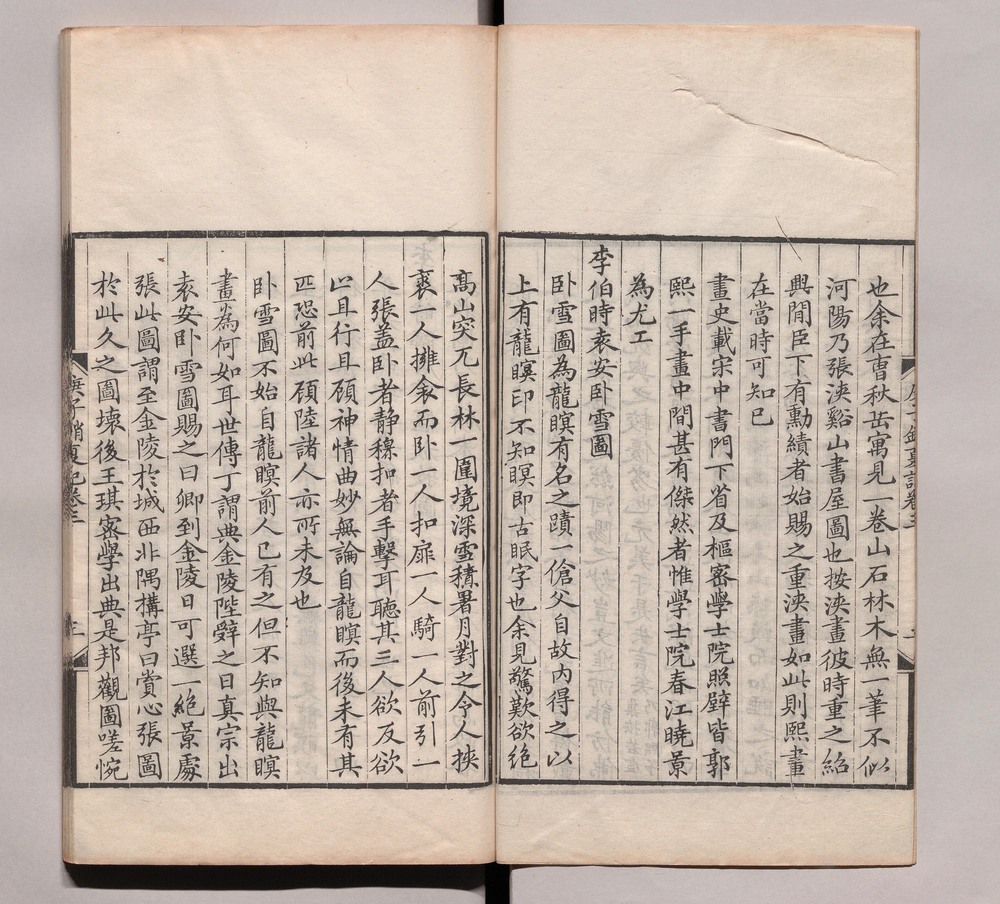 也余在曹秋岳寓見一卷山石林木無一筆不似
河陽乃張浹谿山書屋圖也按浹畫彼時重之紹
興間臣下有勳績者始賜之重浹畫如此則熙畫
在當時可知已
畫史載宋中書門下省及樞密學士院照壁皆郭
熙一手畫中間甚有傑然者惟學士院春江曉景
為尤工
李伯時袁安卧雪圖
卧雪圖為龍瞑有名之蹟一傖父自故內得之以
上有龍瞑印不知瞑即古眠字也余見驚歎欲絶
高山突兀長林一圍境深雪積暑月對之令人挾
裘一人擁衾而卧一人扣扉一人騎一人前引一
人張盖卧者靜穆扣者手擊耳聽其三人欲反欲
止且行且顧神情曲妙無論自龍瞑而後未有其
匹恐前此顧陸諸人亦所未及也
卧雪圖不始自龍瞑前人已有之但不知與龍瞑
畫為何如耳世傳丁謂典金陵陛辭之日真宗出
袁安卧雪圖賜之曰卿到金陵日可選一絶景處
張此圖謂至金陵於城西北隅搆亭曰賞心張圖
於此久之圖壞後王琪密學出典是邦觀圖嗟惋